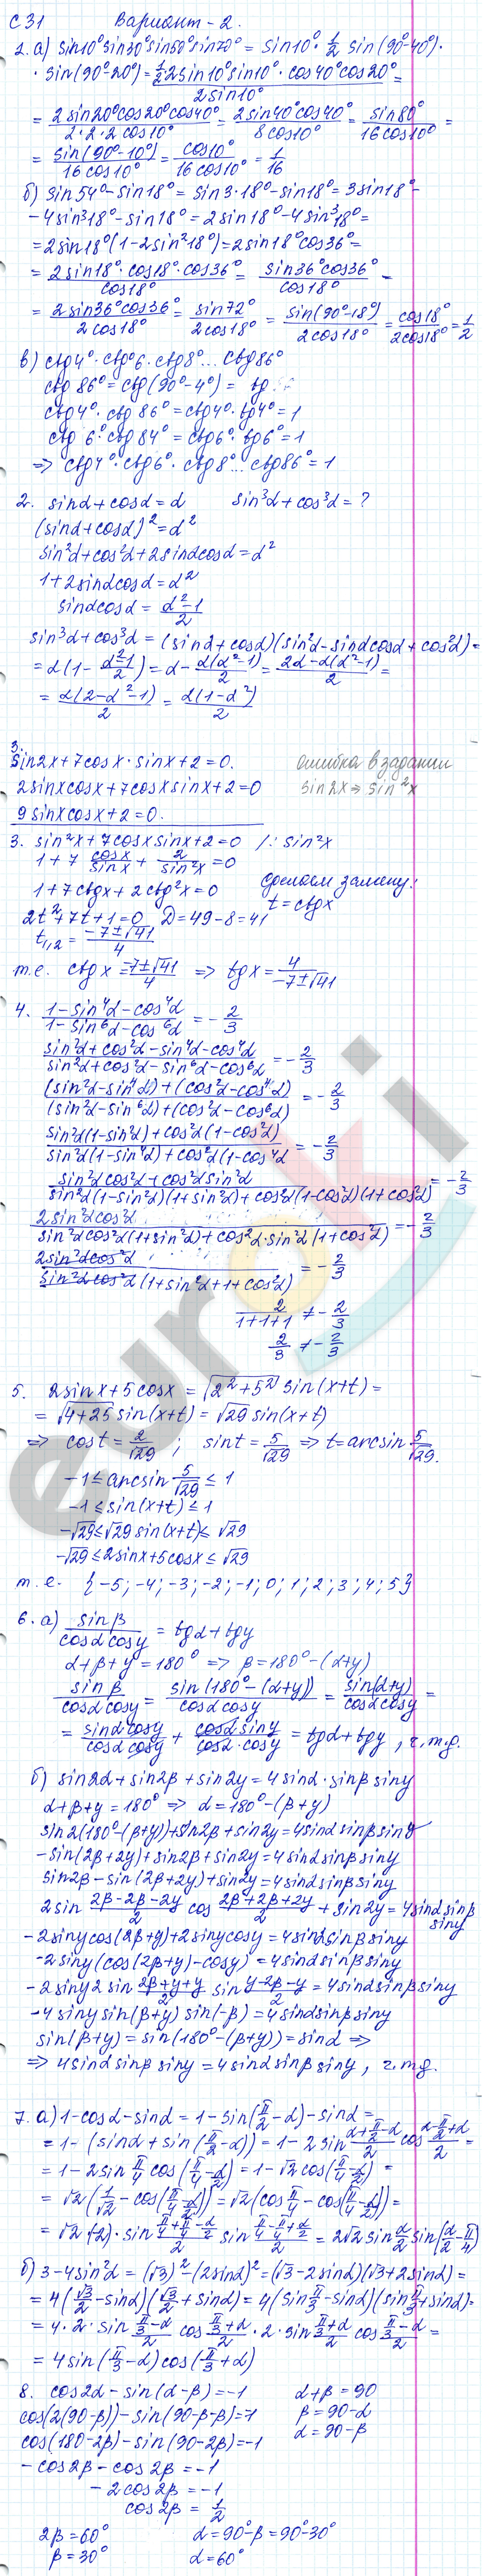 С 31 Вариант - 2.
2. а) sin10° sin30° sin50° sin70° = sin10° · 1/2 sin(90°-40°)·
· sin(90°-20°) = 1/2 2sin10° sin10° · cos40° cos20° / 2sin10° =
= 2sin20° cos20° cos40° / 2·2·2cos10° = 2sin40° cos40° / 8cos10° = sin80° / 16cos10° =
= sin(90°-10°) / 16cos10° = cos10° / 16cos10° = 1/16
б) sin54° - sin18° = sin3·18° - sin18° = 3sin18° -
- 4sin³18° - sin18° = 2sin18° - 4sin³18° =
= 2sin18°(1-2sin²18°) = 2sin18° cos36° =
= 2sin18° · cos18° · cos36° / cos18° = sin36° cos36° / cos18° =
= 2sin36° cos36° / 2cos18° = sin72° / 2cos18° = sin(90°-18°) / 2cos18° = cos18° / 2cos18° = 1/2
в) ctg4° · ctg°6 · ctg8° ... ctg86°
ctg 86° = ctg(90°-4°) = tg
ctg4° · ctg 86° = ctg4° · tg4° = 1
ctg 6° · ctg 84° = ctg6° · tg6° = 1
⇒ ctg4° · ctg6° · ctg8° ... ctg86° = 1
2. sinα + cosα = α sin³α + cos³α = ?
(sinα + cosα)² = α²
sin²α + cos²α + 2sinαcosα = α²
1 + 2sinαcosα = α²
sinαcosα = α²-1 / 2
sin³α + cos³α = (sinα + cosα)(sin²α - sinαcosα + cos²α) =
= α(1 - α²-1 / 2) = α - α(α²-1) / 2 = 2α - α(α²-1) / 2 =
= α(2-α²-1) / 2 = α(1-α²) / 2
3. sin2x + 7cosx · sinx + 2 = 0. ошибка в задании
2sinxcosx + 7cosxsinx + 2 = 0 sin2x ⇒ sin²x
9sinxcosx + 2 = 0.
3. sin²x + 7cosxsinx + 2 = 0 /: sin²x
1 + 7 cosx/sinx + 2/sin²x = 0
1 + 7ctgx + 2ctg²x = 0 Сделаем замену:
2t² + 7t + 1 = 0 D = 49 - 8 = 41 t = ctgx
t₁,₂ = -7±√41 / 4
т.е. ctgx = -7±√41 / 4 ⇒ tgx = 4 / -7±√41
4. 1 - sin⁴α - cos⁴α / 1 - sin⁶α - cos⁶α = -2/3
sin²α + cos²α - sin⁴α - cos⁴α / sin²α + cos²α - sin⁶α - cos⁶α = -2/3
(sin²α - sin⁴α) + (cos²α - cos⁴α) / (sin²α - sin⁶α) + (cos²α - cos⁶α) = -2/3
sin²α(1-sin²α) + cos²α(1-cos²α) / sin²α(1-sin⁴α) + cos²α(1-cos⁴α = -2/3
sin²αcos²α + cos²αsin²α / sin²α(1-sin²α)(1+sin²α) + cos²α(1-cos²α)(1+cos²α) = -2/3
2sin²αcos²α / sin²αcos²α(1+sin²α) + cos²α·sin²α(1+cos²α) = -2/3
2sin²αcos²α / sin²αcos²α(1+sin²α+1+cos²α) = -2/3
2 / 1+1+1 ≠ -2/3
2/3 ≠ -2/3
5. 2sinx + 5cosx = √(2²+5²) sin(x+t) =
= √4+25 sin(x+t) = √29 sin(x+t)
⇒ cost = 2/√29 ; sint = 5/√29 ⇒ t = arcsin 5/√29.
-1 ≤ arcsin 5/√29 ≤ 1
-1 ≤ sin(x+t) ≤ 1
-√29 ≤ √29 sin(x+t) ≤ √29
-√29 ≤ 2sinx + 5cosx ≤ √29
т.е. {-5; -4; -3; -2; -1; 0; 1; 2; 3; 4; 5}
6. а) sinβ / cosαcosγ = tgα + tgγ
α + β + γ = 180° ⇒ β = 180° - (α+γ)
sinβ / cosαcosγ = sin(180°-(α+γ)) / cosαcosγ = sin(α+γ) / cosαcosγ =
= sinαcosγ / cosαcosγ + cosαsinγ / cosα·cosγ = tgα + tgγ, ч.т.д.
б) sin2α + sin2β + sin2γ = 4sinα · sinβ sinγ
α + β + γ = 180° ⇒ α = 180° - (β+γ)
sin2(180°-(β+γ)) + sin2β + sin2γ = 4sinα sinβ sinγ
-sin(2β+2γ) + sin2β + sin2γ = 4sinα sinβ sinγ
sin2β - sin(2β+2γ) + sin2γ = 4sinα sinβ sinγ
2sin 2β-2β-2γ / 2 cos 2β+2β+2γ / 2 + sin2γ = 4sinα sinβ sinγ
-2sinγcos(2β+γ) + 2sinγcosγ = 4sinα sinβ sinγ
-2sinγ(cos(2β+γ) - cosγ) = 4sinα sinβ sinγ
-2sinγ2sin 2β+γ+γ / 2 sin γ-2β-γ / 2 = 4sinα sinβ sinγ
-4sinγ sin(β+γ) sin(-β) = 4sinα sinβ sinγ
sin(β+γ) = sin(180°-(β+γ)) = sinα ⇒
⇒ 4sinα sinβ sinγ = 4sinα sinβ sinγ, ч.т.д.
7. а) 1 - cosα - sinα = 1 - sin(π/2 - α) - sinα =
= 1 - (sinα + sin(π/2 - α)) = 1 - 2sin α+π/2-α / 2 cos α-π/2+α / 2 =
= 1 - 2sin π/4 cos(π/4 - α/2) = 1 - √2 cos(π/4 - α/2) =
= √2 (1/√2 - cos(π/4 - α/2)) = √2 (cos π/4 - cos(π/4 - α/2)) =
= √2 (-2) · sin π/4+π/4-α/2 / 2 sin π/4-π/4+α/2 / 2 = 2√2 sin α/2 sin(α/2 - π/4)
б) 3 - 4sin²α = (√3)² - (2sinα)² = (√3 - 2sinα)(√3 + 2sinα) =
= 4(√3/2 - sinα)(√3/2 + sinα) = 4(sin π/3 - sinα)(sin π/3 + sinα) =
= 4 · 2 · sin π/3-α / 2 cos π/3+α / 2 · 2 · sin π/3+α / 2 cos π/3-α / 2 =
= 4sin(π/3 - α)cos(π/3 + α)
8. cos2α - sin(α-β) = -1 α + β = 90
cos(2(90-β)) - sin(90-β-β) = -1 β = 90-α
cos(180-2β) - sin(90-2β) = -1 α = 90-β
-cos2β - cos2β = -1
-2cos2β = -1
cos2β = 1/2
2β = 60° α = 90°-β = 90°-30°
β = 30° α = 60°
euroki